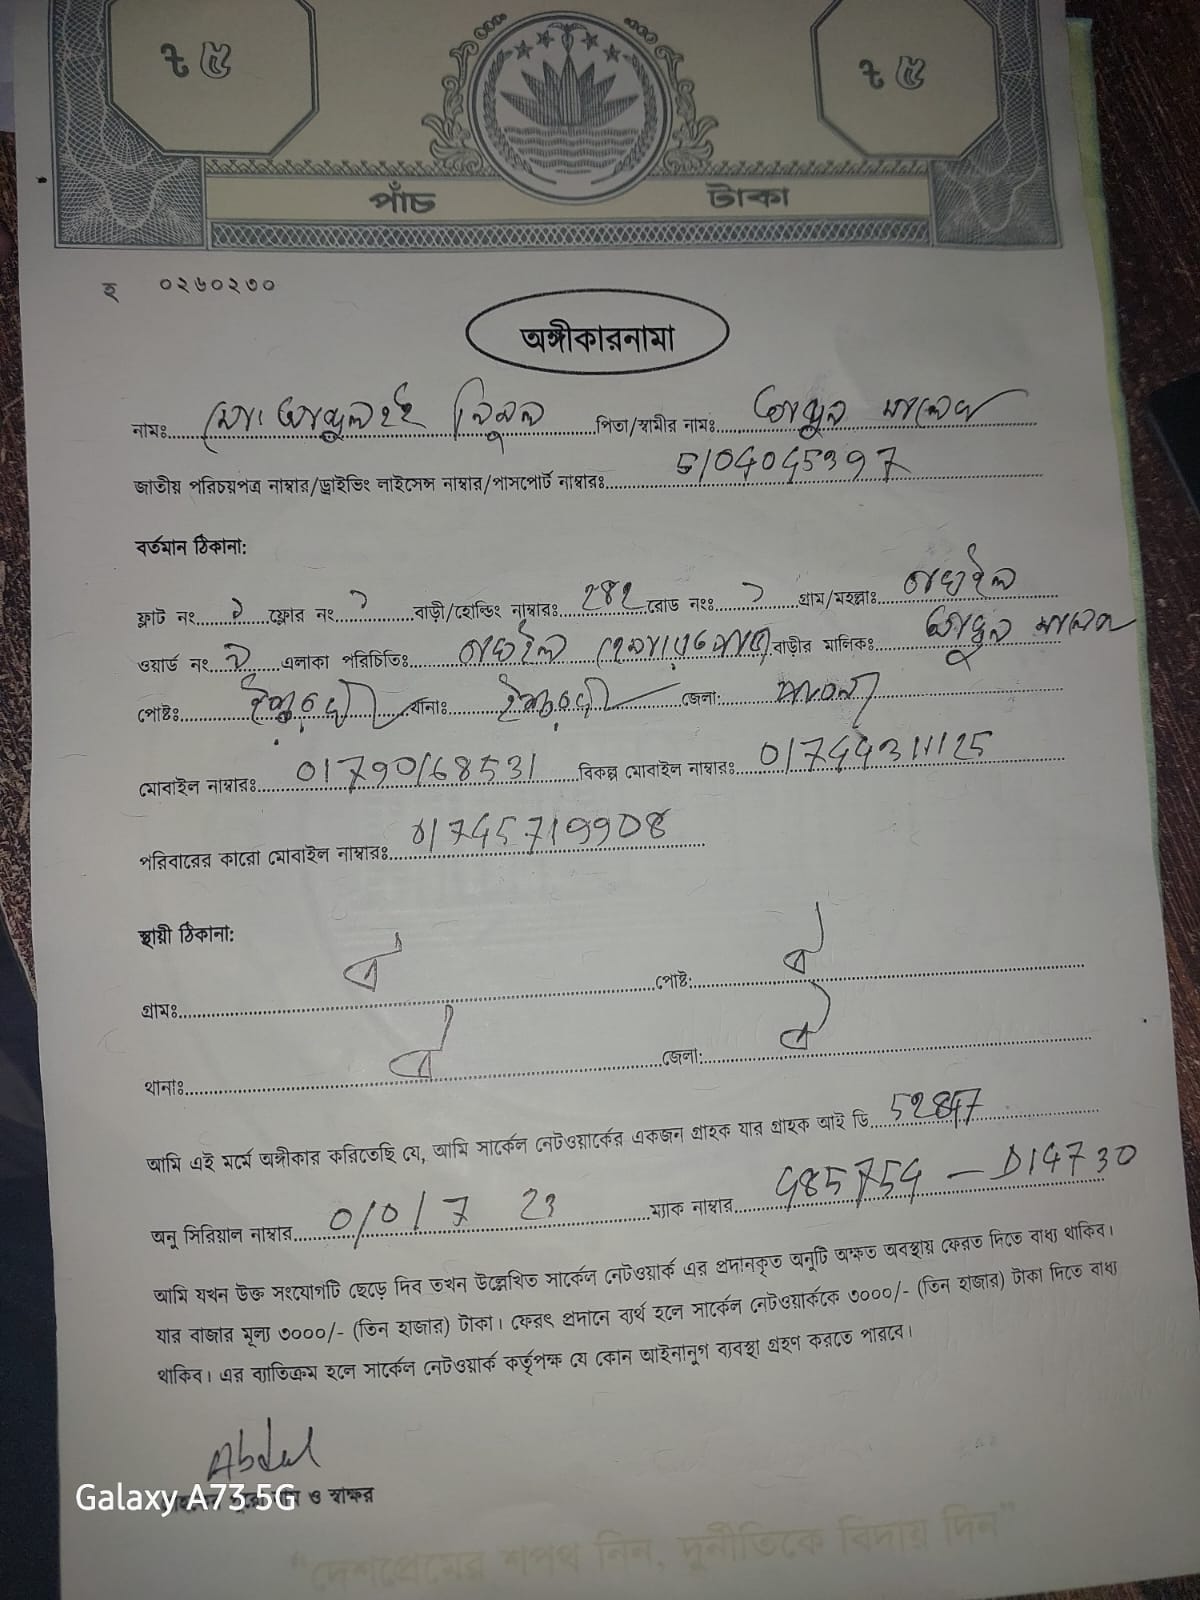 ৳ ৫ ৳ ৫
পাঁচ টাকা
হ ০২৬০২৩০
অঙ্গীকারনামা
নামঃ মোঃ আব্দুল হই পিতা/স্বামীর নামঃ আব্দুল মালেক
জাতীয় পরিচয়পত্র নাম্বার/ড্রাইভিং লাইসেন্স নাম্বার/পাসপোর্ট নাম্বারঃ 5104045397
বর্তমান ঠিকানা:
ফ্লাট নং ফ্লোর নং বাড়ী/হোল্ডিং নাম্বারঃ রোড নংঃ গ্রাম/মহল্লাঃ
ওয়ার্ড নং এলাকা পরিচিতিঃ বাড়ীর মালিকঃ আব্দুল মালেক
পোষ্টঃ ঈশ্বরদী থানাঃ ঈশ্বরদী জেলা: পাবনা
মোবাইল নাম্বারঃ 01790168531 বিকল্প মোবাইল নাম্বারঃ 01744311125
পরিবারের কারো মোবাইল নাম্বারঃ 01745719908
স্থায়ী ঠিকানা:
গ্রামঃ ঐ পোষ্ট: ঐ
থানাঃ ঐ জেলা: ঐ
আমি এই মর্মে অঙ্গীকার করিতেছি যে, আমি সার্কেল নেটওয়ার্কের একজন গ্রাহক যার গ্রাহক আই ডি 52847
অনু সিরিয়াল নাম্বার 0/0/7 23 ম্যাক নাম্বার 485754 - D14730
আমি যখন উক্ত সংযোগটি ছেড়ে দিব তখন উল্লেখিত সার্কেল নেটওয়ার্ক এর প্রদানকৃত অনুটি অক্ষত অবস্থায় ফেরত দিতে বাধ্য থাকিব।
যার বাজার মূল্য ৩০০০/- (তিন হাজার) টাকা। ফেরৎ প্রদানে ব্যর্থ হলে সার্কেল নেটওয়ার্ককে ৩০০০/- (তিন হাজার) টাকা দিতে বাধ্য
থাকিব। এর ব্যতিক্রম হলে সার্কেল নেটওয়ার্ক কর্তৃপক্ষ যে কোন আইনানুগ ব্যবস্থা গ্রহণ করতে পারবে।
Abdul
ও স্বাক্ষর
Galaxy A73 5G
"দেশপ্রেমের শপথ নিন, দুর্নীতিকে বিদায় দিন"